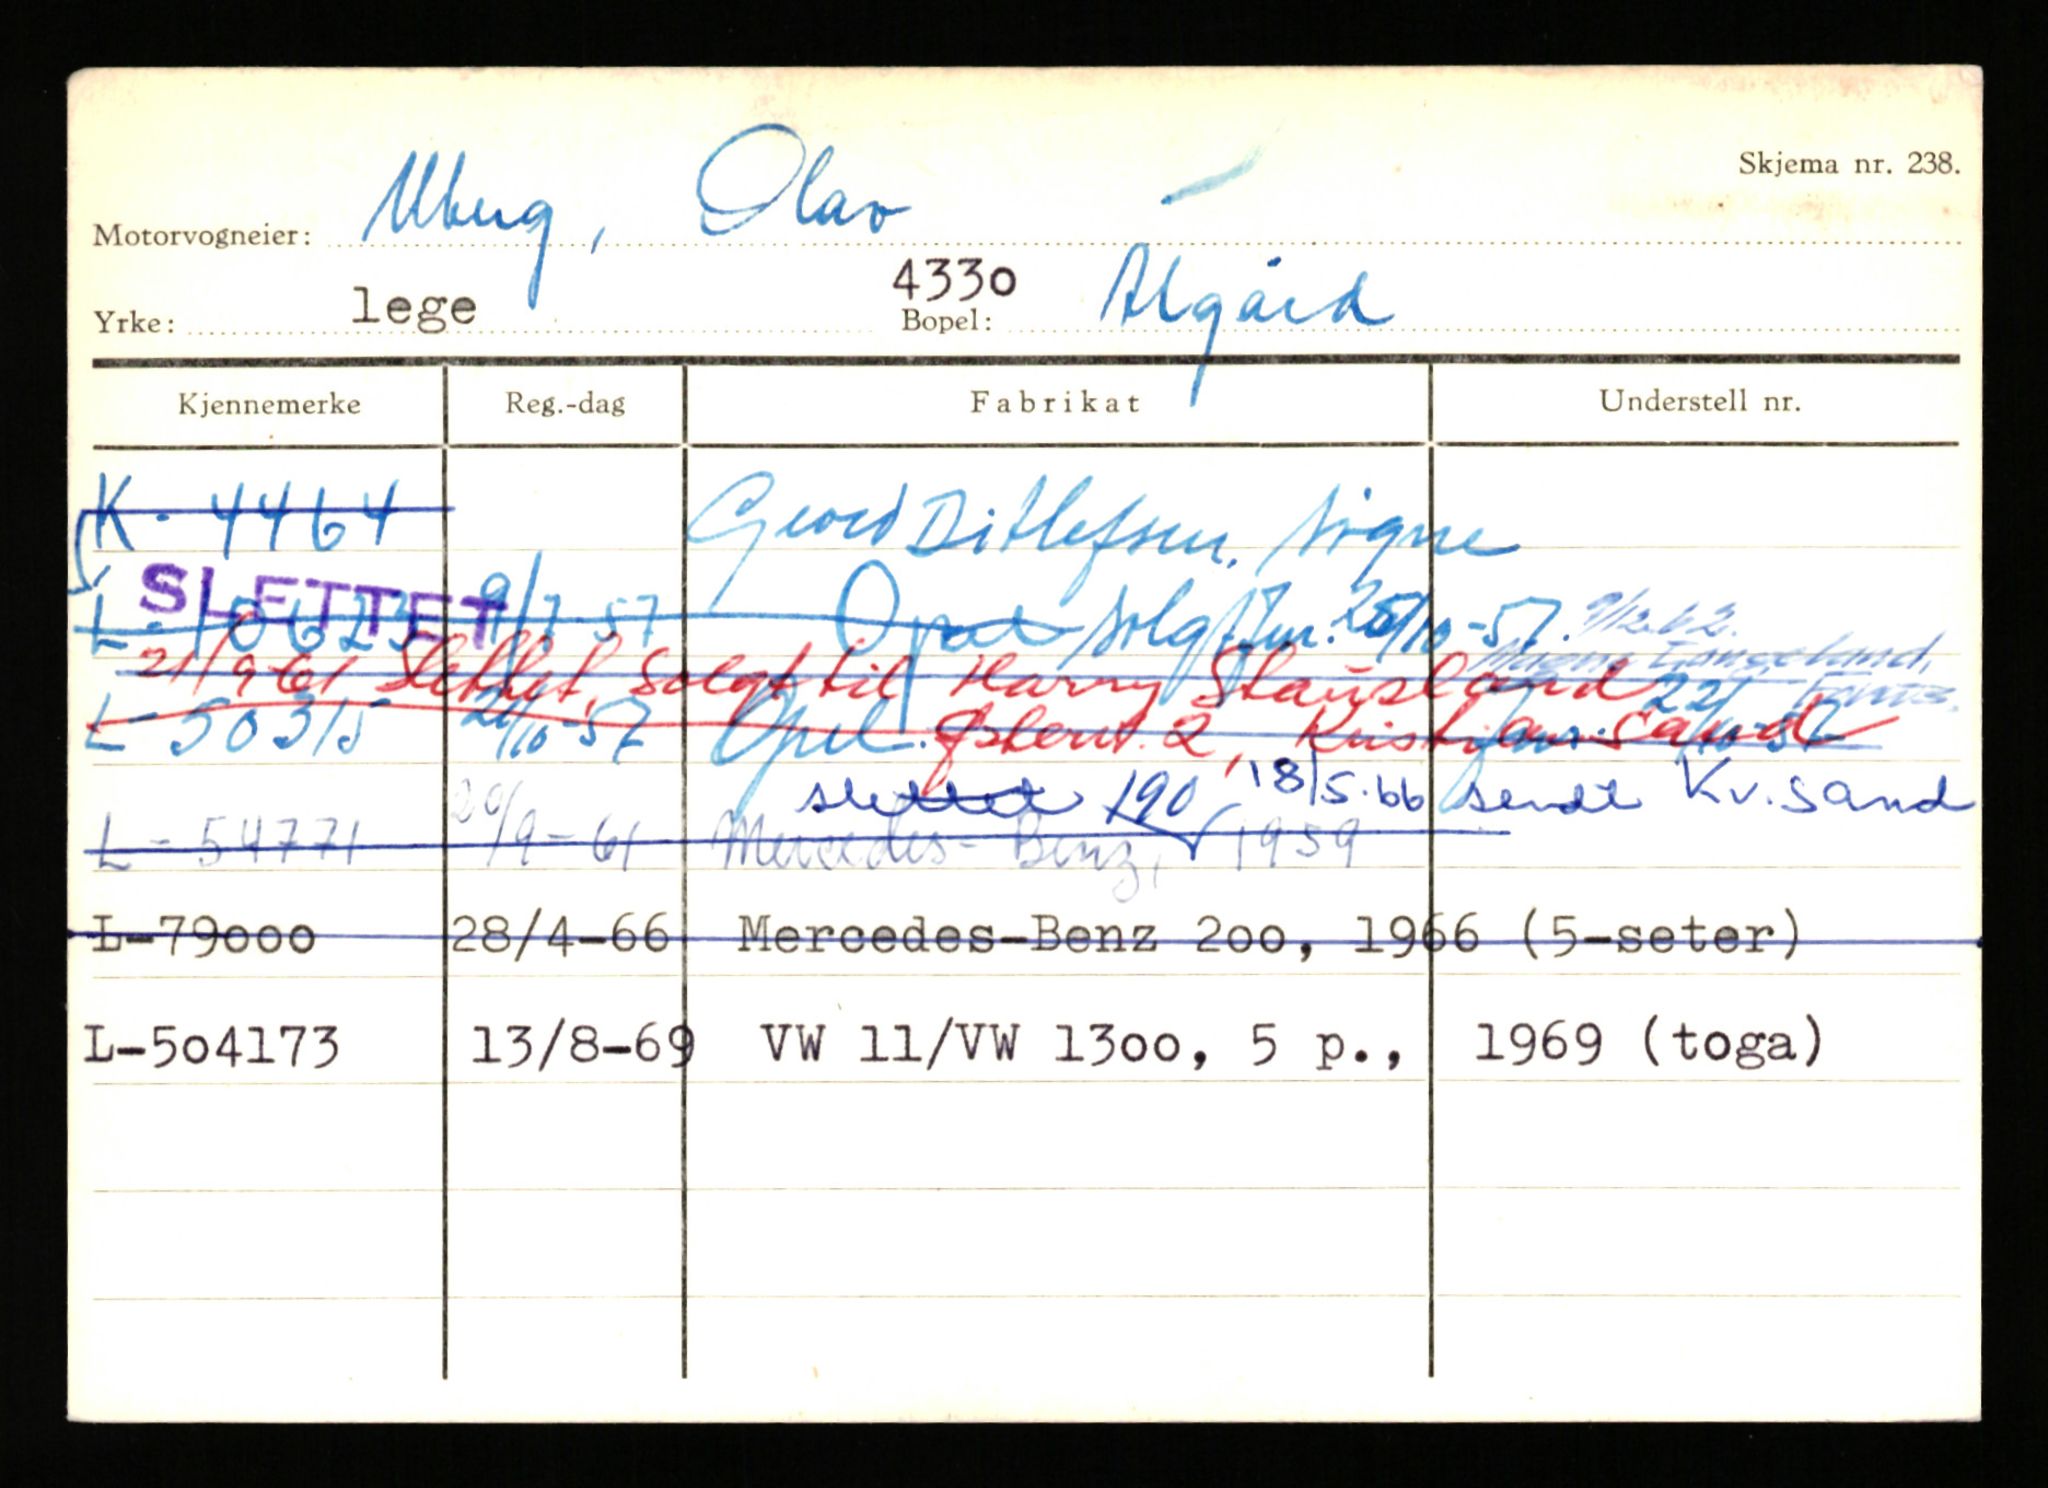 Skjema nr. 238.
Motorvogneier: Olav
4330
Yrke: lege Bopel: Ålgård
Kjennemerke Reg.-dag Fabrikat Understell nr.
K - 4464 Ditlefsen, Signe
SLETTET
L - 10623 9/7-57 Opel solgt 25/10-57. 9/12.62.
21/9-61 Slettet, Solgt til Harry Stausland
L - 50315 Opel. Østerv. 2, Kristiansand
slettet 190 18/5.66 sendt Kv. sand
L - 54771 20/9-61 Mercedes-Benz, 1959
L-79000 28/4-66 Mercedes-Benz 200, 1966 (5-seter)
L-504173 13/8-69 VW 11/VW 1300, 5 p., 1969 (toga)